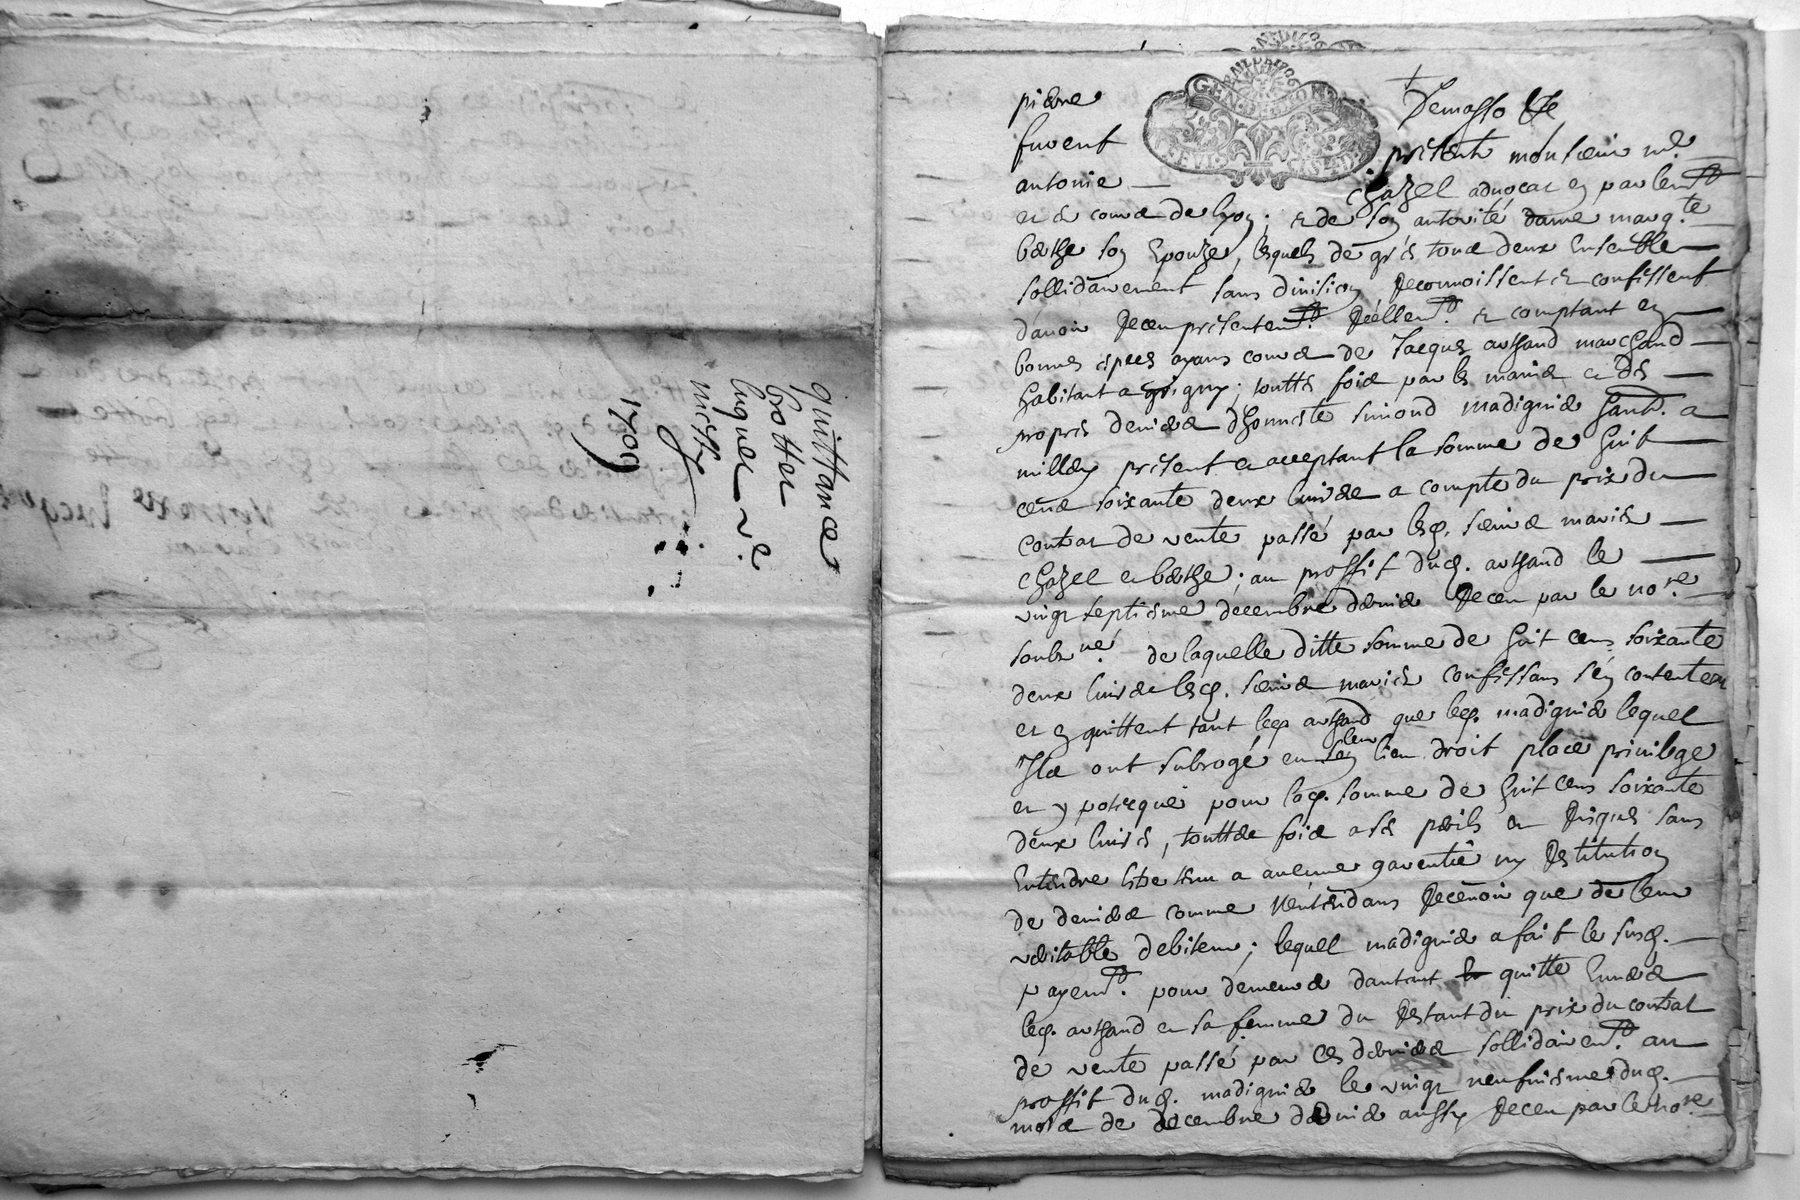 quittance
1709
GEN. DE LYON
pierre
furent présents monsieur me
antoine chazel advocat en parlemt
et es cours de lyon ; et de son autorité dame margte
berthe son Epouze, lesquels de gré et tous deux Ensemble
sollidairement sans division Reconnoissent et confessent
davoir Receu présentemt Réellemt et comptant en
bonnes espces ayans cours de Jacques arthaud marchand
habitant a grigny ; touttes fois par les mains et des
propres deniers dhonneste simond madignier habt a
millery présent et acceptant la somme de huit
cens soixante deux livres a compte du prix du
contrat de vente passé par lesd. sieurs mariés
chazel et berthe ; au proffit dud. arthaud le
vingt septieme décembre dernier Receu par le nore
soubzné de laquelle ditte somme de huit cens soixante
deux livres lesd. sieurs mariés confessans sen contentent
et en quittent tant led. arthaud que led. madignier lequel
Ils ont subrogé en leur lieu droit place privilege
et ypoteque pour lad. somme de huit cens soixante
deux livres, touttes fois a ses périls et Risques sans
Entendre estre tenu a aucune garentie ny Restitution
de deniers comme n'entendans Recevoir que de leur
véritable debiteur ; lequel madignier a fait le susd.
payemt pour demeurer dautant quitte Envers
led. arthaud et sa femme du Restant du prix du contrat
de vente passé par ces derniers sollidairemt au
proffit dud. madignier le vingt neufvieme dud.
mois de décembre dernier aussy Receu par le nore